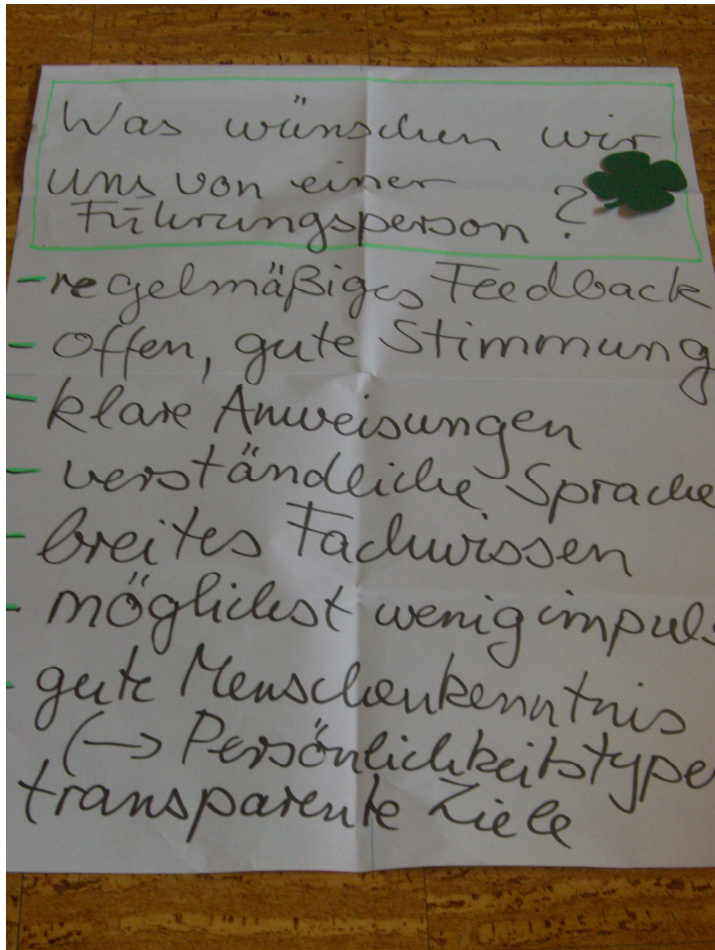 Was wünschen wir
uns von einer
Führungsperson ?
- regelmäßiges Feedback
- offen, gute Stimmung
- klare Anweisungen
- verständliche Sprache
- breites Fachwissen
- möglichst wenig impuls
- gute Menschenkenntnis
(→ Persönlichkeitstype
transparente Ziele